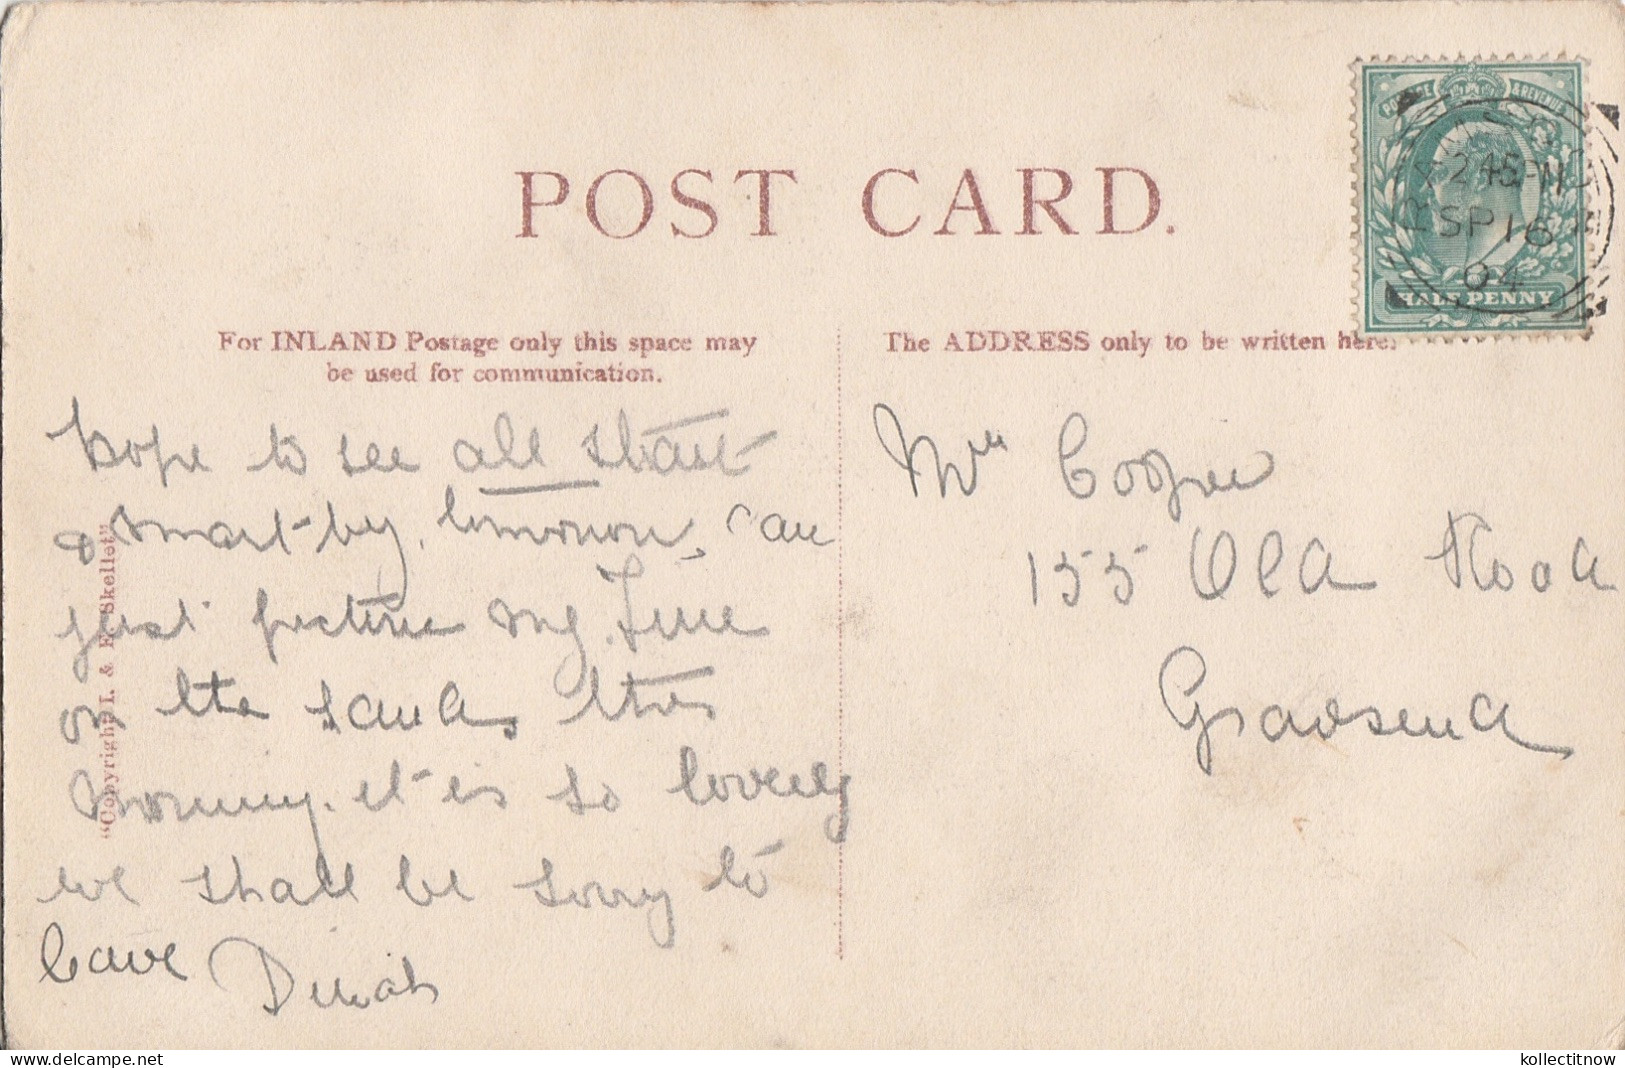 POST CARD.
POSTAGE & REVENUE
RAMSGATE
2 45 PM
SP 16
04
HALF PENNY
For INLAND Postage only this space may
be used for communication.
The ADDRESS only to be written here.
hope to see all
& smart by, tomorrow, can
just picture my June
on the sands this
morning. it is so lovely
we shall be sorry to
leave Dinah
Mrs Cooper
155 Old Road
Gravesend
"Copyright I. & E. Skellet"
kollectitnow